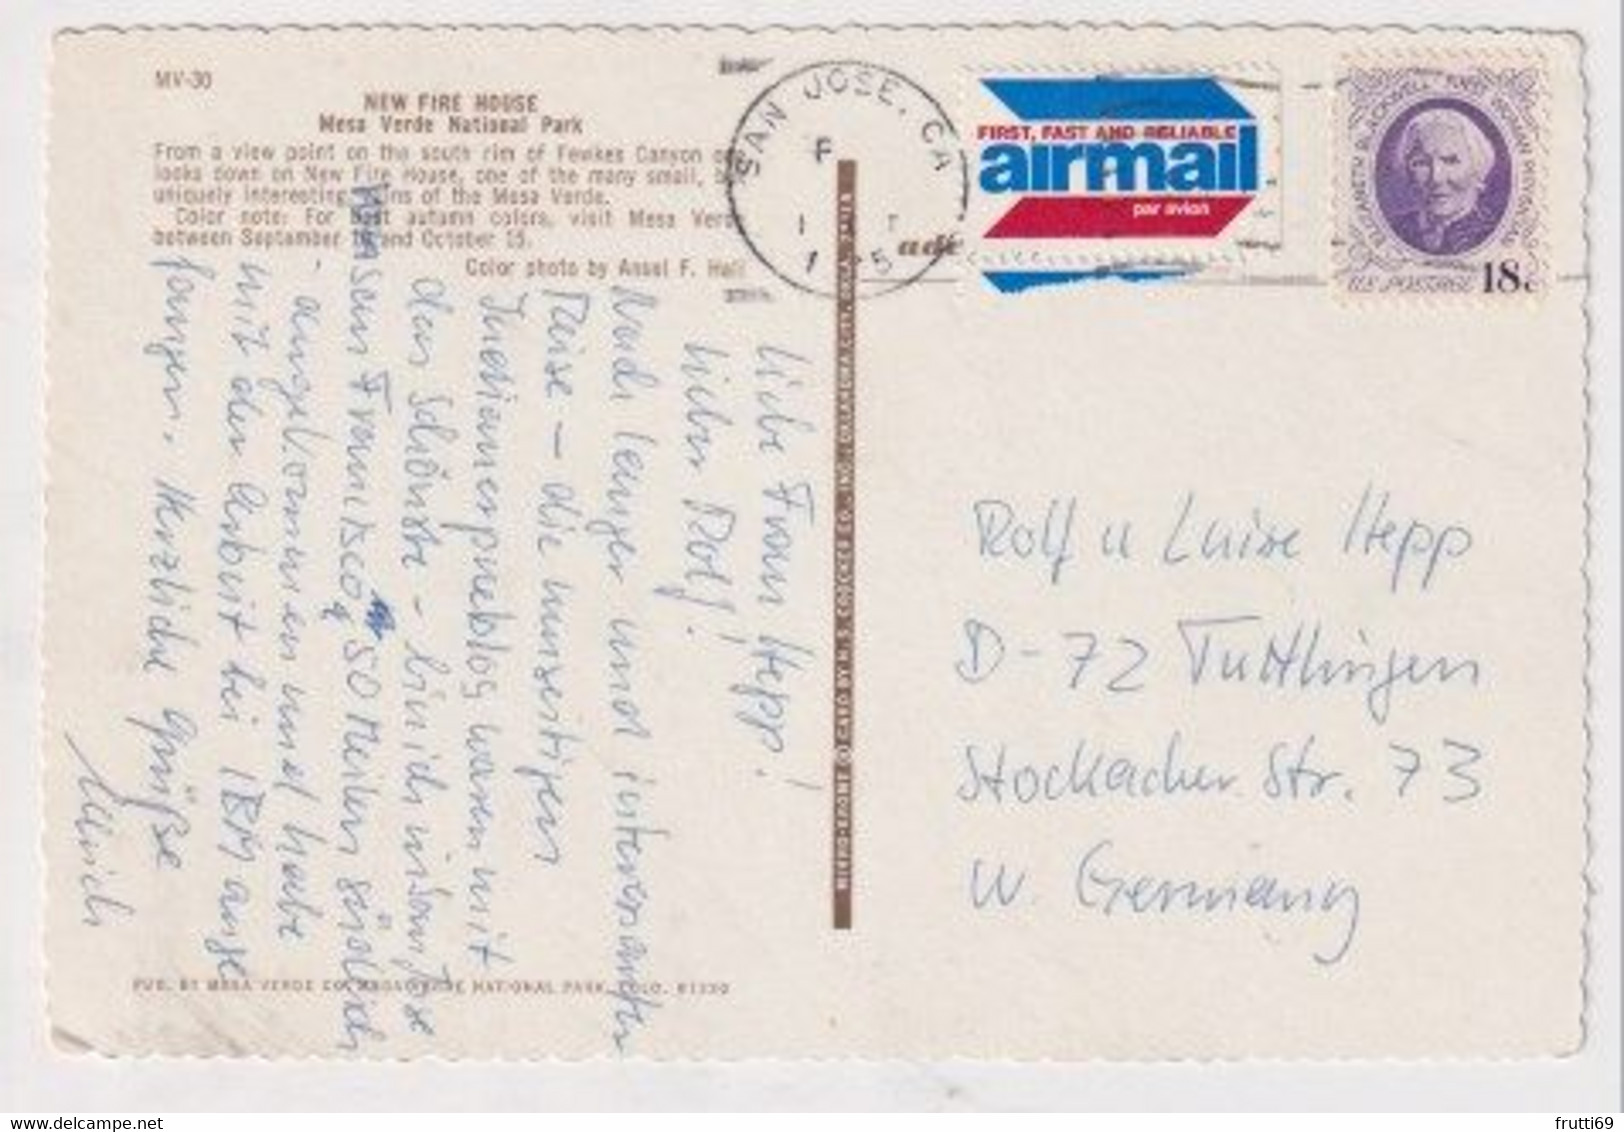 MV-30
NEW FIRE HOUSE
Mesa Verde National Park
From a view point on the south rim of Fewkes Canyon
looks down on New Fire House, one of the many small,
uniquely interesting ruins of the Mesa Verde.
Color note: For best autumn colors, visit Mesa Verde
between September and October 15.
Color photo by Ansel F. Hall
Liebe Frau Hepp!
Lieber Rolf!
Nach langer und interessanter
Reise – die hiesigen
Indianerpueblos waren mit
das Schönste – bin ich in San Jose
50 Meilen südlich
San Francisco
angekommen und habe
mit der Arbeit bei IBM ange
fangen. Herzliche Grüße
Ulrich
PUB. BY MESA VERDE CO., MESA VERDE NATIONAL PARK, COLO. 81330
SAN JOSE, CA
FIRST, FAST AND RELIABLE
airmail
par avion
ELIZABETH BLACKWELL FIRST WOMAN PHYSICIAN
U.S. POSTAGE 18c
Rolf u Luise Hepp
D-72 Tuttlingen
Stockacher Str. 73
W. Germany
frutti69